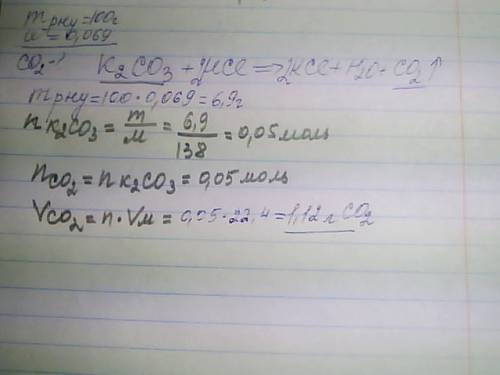 m рну = 100г
w = 0,069
CO2 - ?
K2CO3 + 2HCl => 2HCl + H2O + CO2↑
m рну = 100 · 0,069 = 6,9г
n K2CO3 = m/M = 6,9/138 = 0,05 моль
n CO2 = n K2CO3 = 0,05 моль
V CO2 = n · Vм = 0,05 · 22,4 = 1,12 л CO2